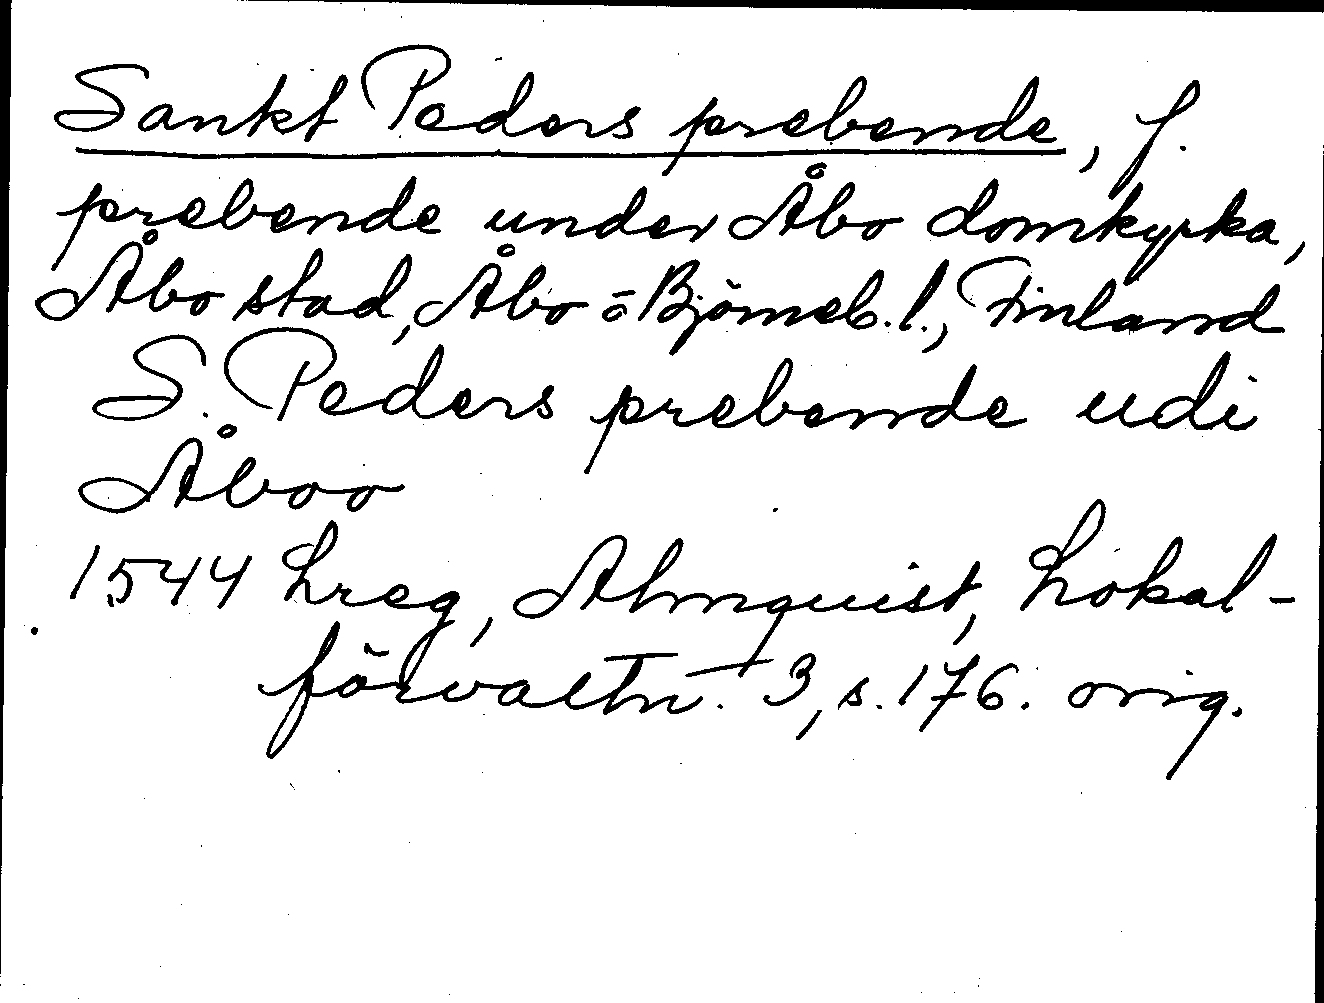 Sankt Peders prebende, f.
prebende under Åbo domkyrka,
Åbo stad, Åbo o Björneb. l., Finland
S. Peders prebende udi
Åboo
1544 Lreg, Almquist, Lokal-
förvaltn. 3, s. 176. orig.